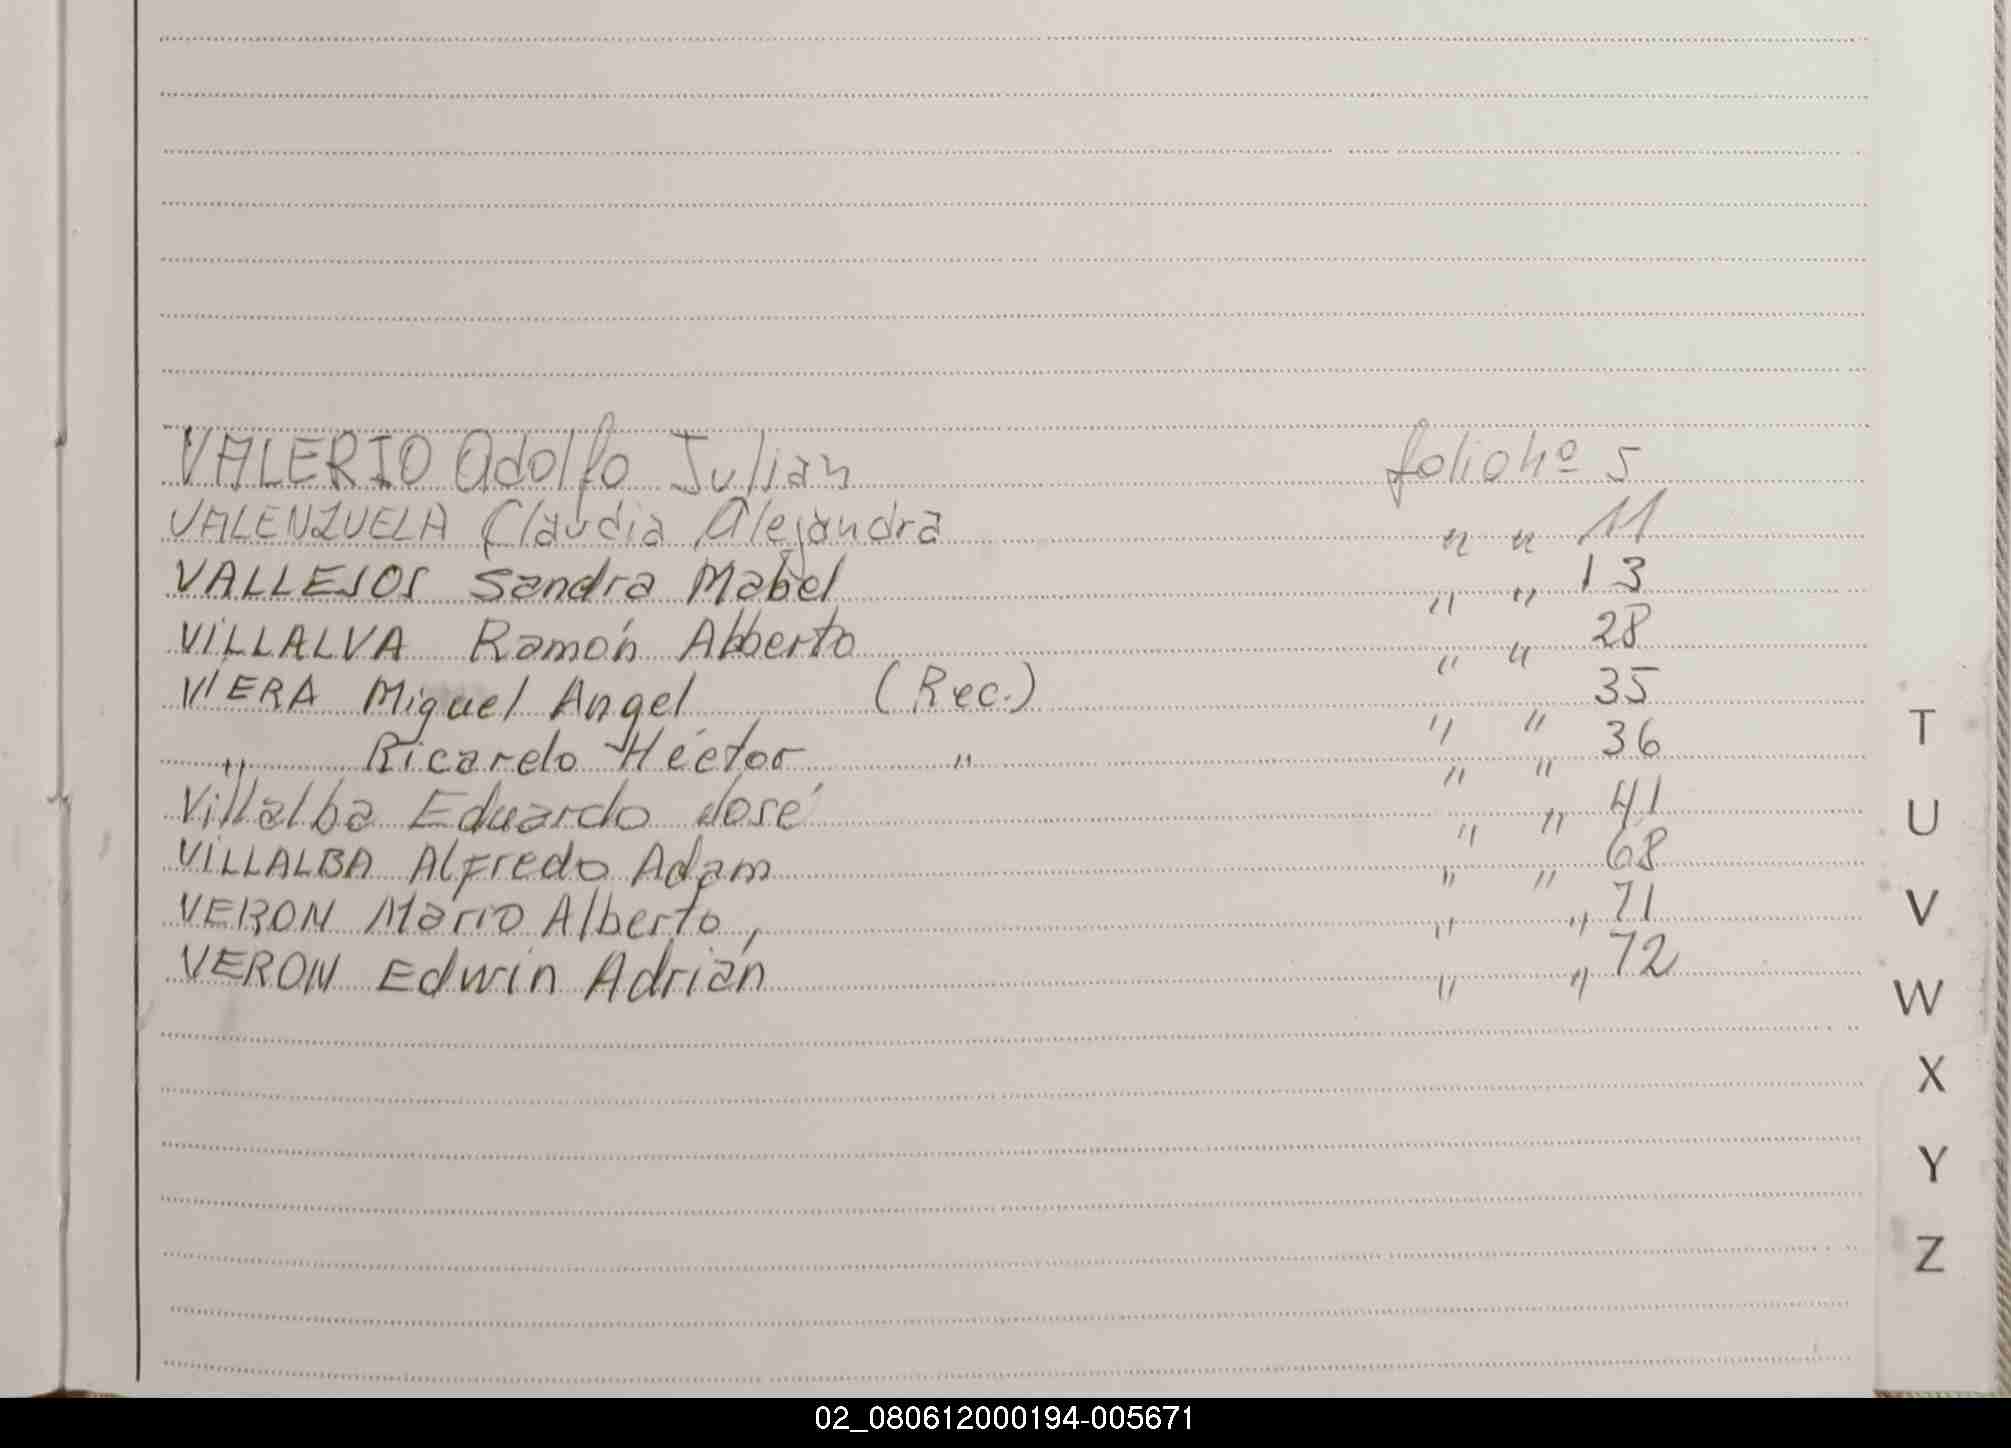 VALERIO Adolfo Julian folio nº 5
VALENZUELA Claudia Alejandra " " 11
VALLEJOS Sandra Mabel " " 13
VILLALVA Ramón Alberto " " 28
VIERA Miguel Angel (Rec.) " " 35
" Ricardo Héctor " " " 36
Villalba Eduardo José " " 41
VILLALBA Alfredo Adam " " 68
VERON Mario Alberto, " " 71
VERON Edwin Adrián " " 72
T
U
V
W
X
Y
Z
02_080612000194-005671